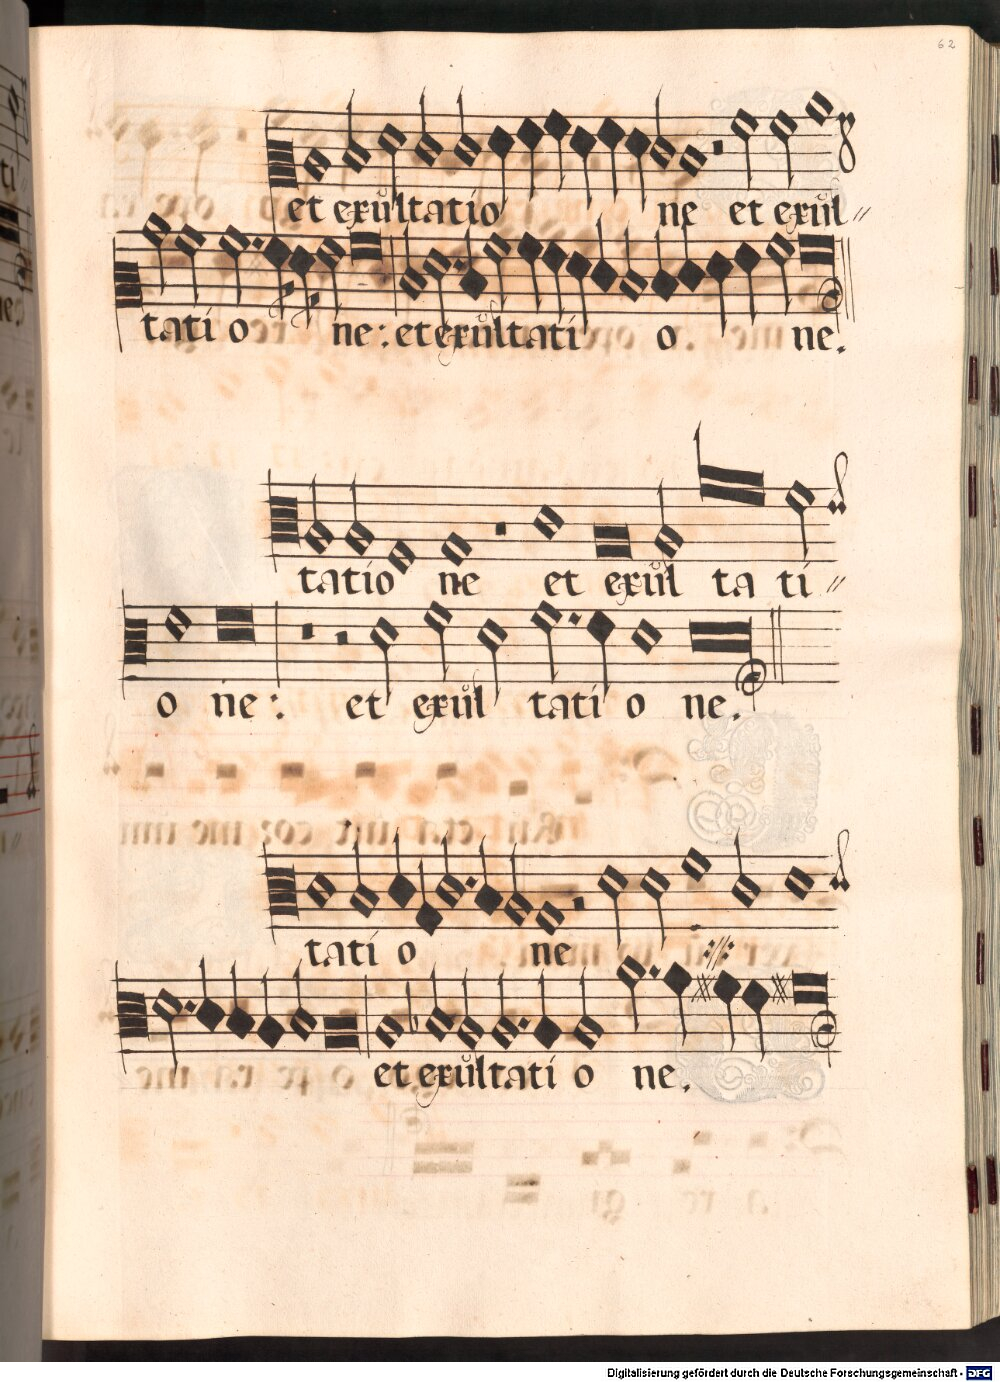 62
et exultatio ne et exul
tati o ne: et exultati o ne.
tatio ne et exul ta ti
o ne: et exul tati o ne.
tati o ne
et exultati o ne.
Digitalisierung gefördert durch die Deutsche Forschungsgemeinschaft - DFG